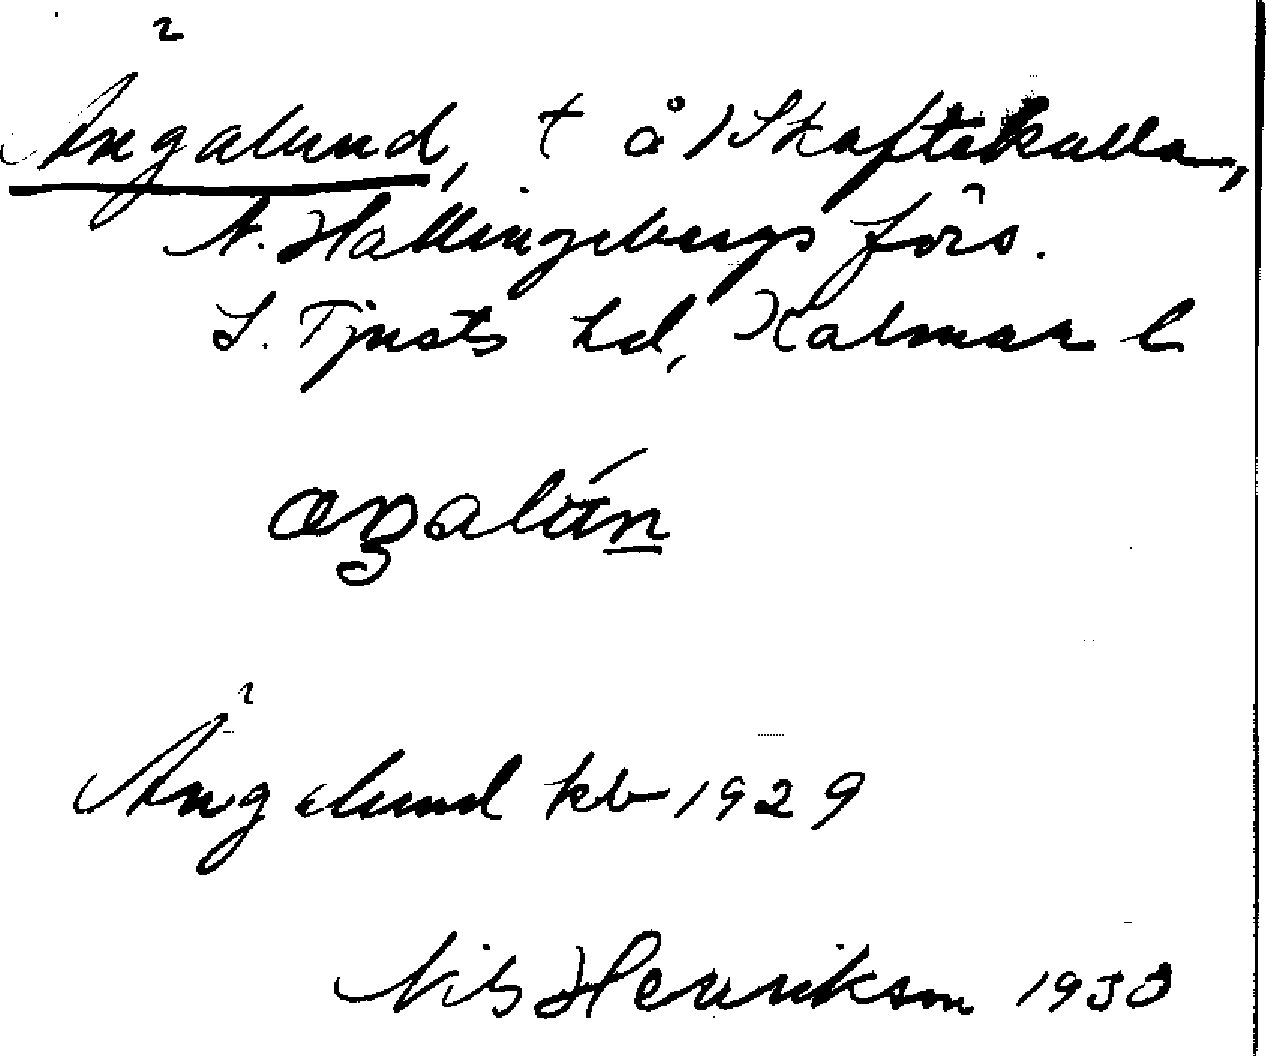 Ängalund, t å Skaftekulla,
N. Hallingebergs förs.
S. Tjusts hd, Kalmar l
Ängalund kb 1929
Nils Henrikson 1933